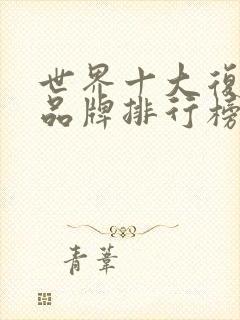 世界十大復
品牌排行榜
青葦